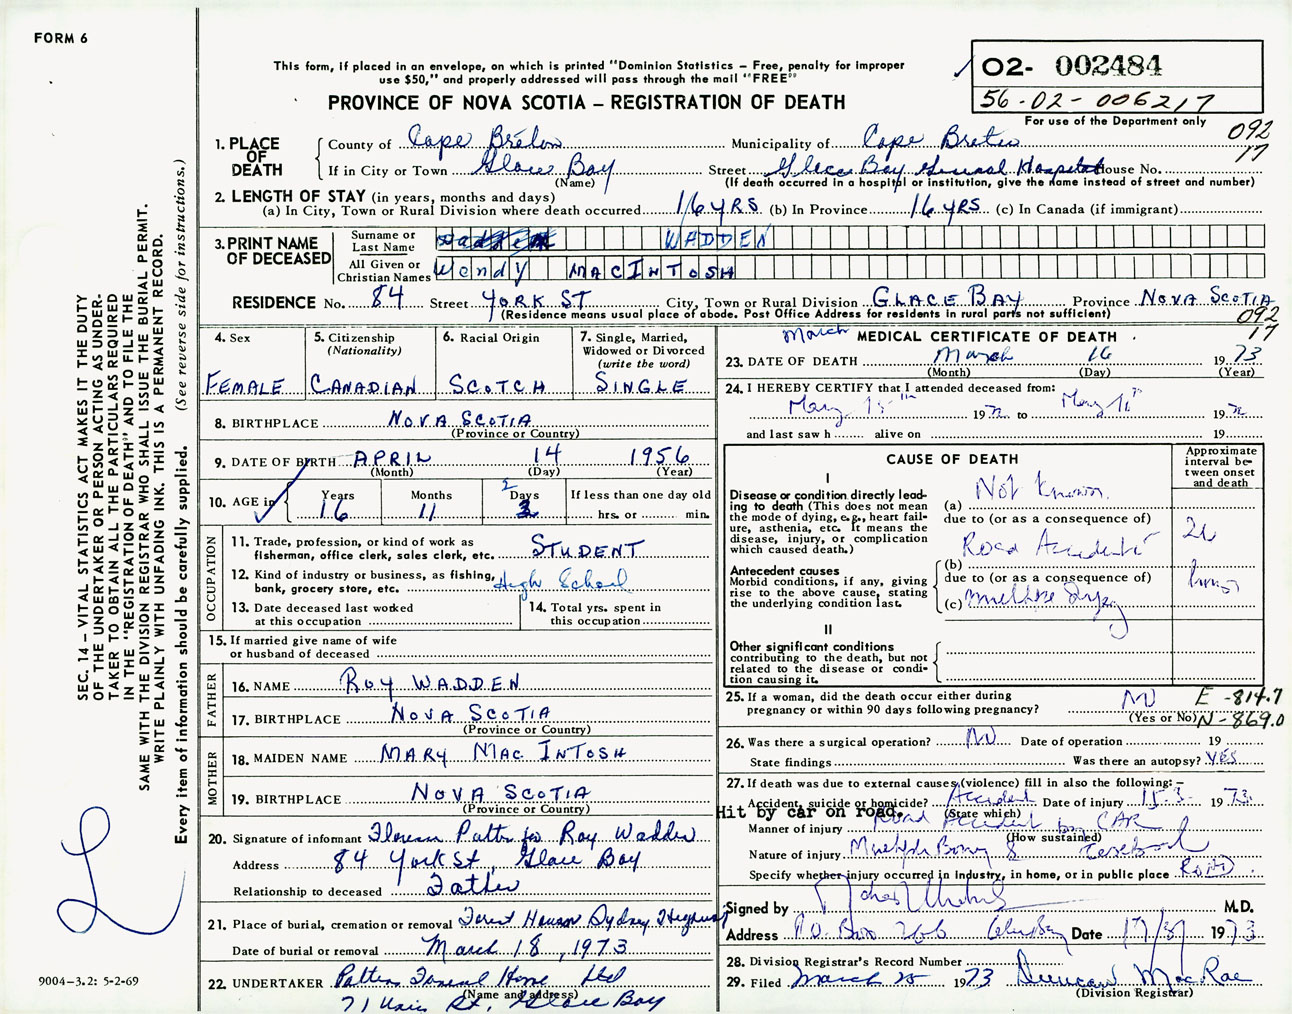 FORM 6
This form, if placed in an envelope, on which is printed "Dominion Statistics – Free, penalty for improper
use $50," and properly addressed will pass through the mail "FREE"
PROVINCE OF NOVA SCOTIA – REGISTRATION OF DEATH
02- 002484
56-02-006217
For use of the Department only
092
17
1. PLACE OF DEATH
County of Cape Breton Municipality of Cape Breton
If in City or Town Glace Bay Street Glace Bay General Hospital House No.
(Name) (If death occurred in a hospital or institution, give the name instead of street and number)
2. LENGTH OF STAY (in years, months and days)
(a) In City, Town or Rural Division where death occurred 16 YRS (b) In Province 16 YRS (c) In Canada (if immigrant)
3. PRINT NAME OF DECEASED
Surname or Last Name WADDEN
All Given or Christian Names Wendy MACINTOSH
RESIDENCE No. 84 Street YORK ST City, Town or Rural Division GLACE BAY Province NOVA SCOTIA
(Residence means usual place of abode. Post Office Address for residents in rural parts not sufficient)
092
17
4. Sex FEMALE
5. Citizenship (Nationality) CANADIAN
6. Racial Origin SCOTCH
7. Single, Married, Widowed or Divorced (write the word) SINGLE
8. BIRTHPLACE NOVA SCOTIA
(Province or Country)
9. DATE OF BIRTH APRIL 14 1956
(Month) (Day) (Year)
10. AGE in Years 16 Months 11 Days 2 If less than one day old hrs. or min.
OCCUPATION
11. Trade, profession, or kind of work as
fisherman, office clerk, sales clerk, etc. STUDENT
12. Kind of industry or business, as fishing,
bank, grocery store, etc. High School
13. Date deceased last worked
at this occupation
14. Total yrs. spent in
this occupation
15. If married give name of wife
or husband of deceased
FATHER
16. NAME ROY WADDEN
17. BIRTHPLACE NOVA SCOTIA
(Province or Country)
MOTHER
18. MAIDEN NAME MARY MAC INTOSH
19. BIRTHPLACE NOVA SCOTIA
(Province or Country)
20. Signature of informant for Roy Wadden
Address 84 York St, Glace Bay
Relationship to deceased Father
21. Place of burial, cremation or removal Forest Haven Sydney
Date of burial or removal March 18, 1973
22. UNDERTAKER Funeral Home Ltd
(Name and address)
71 St. Glace Bay
March
MEDICAL CERTIFICATE OF DEATH
23. DATE OF DEATH March 16 1973
(Month) (Day) (Year)
24. I HEREBY CERTIFY that I attended deceased from:
19 to 19
and last saw h alive on 19
CAUSE OF DEATH
Approximate interval between onset and death
I
Disease or condition directly leading to death (This does not mean the mode of dying, e.g., heart failure, asthenia, etc. It means the disease, injury, or complication which caused death.)
(a) Not Known
due to (or as a consequence of)
Antecedent causes
Morbid conditions, if any, giving rise to the above cause, stating the underlying condition last.
(b) Road Accident
due to (or as a consequence of)
(c) multiple
II
Other significant conditions
contributing to the death, but not related to the disease or condition causing it.
25. If a woman, did the death occur either during
pregnancy or within 90 days following pregnancy? NO
(Yes or No)
E -814.7
N-869.0
26. Was there a surgical operation? NO Date of operation 19
State findings Was there an autopsy? YES
27. If death was due to external causes (violence) fill in also the following:–
Accident, suicide or homicide? Accident Date of injury 15-3- 1973
(State which)
Hit by car on road.
Manner of injury Road Accident by CAR
(How sustained)
Nature of injury
Specify whether injury occurred in Industry, in home, or in public place ROAD
Signed by M.D.
Address Date 1973
28. Division Registrar's Record Number
29. Filed March 1973 Duncan MacRae
(Division Registrar)
SEC. 14 – VITAL STATISTICS ACT MAKES IT THE DUTY
OF THE UNDERTAKER OR PERSON ACTING AS UNDERTAKER
TO OBTAIN ALL THE PARTICULARS REQUIRED
IN THE "REGISTRATION OF DEATH" AND TO FILE THE
SAME WITH THE DIVISION REGISTRAR WHO SHALL ISSUE THE BURIAL PERMIT.
WRITE PLAINLY WITH UNFADING INK. THIS IS A PERMANENT RECORD.
Every item of information should be carefully supplied. (See reverse side for instructions.)
9004-3.2: 5-2-69